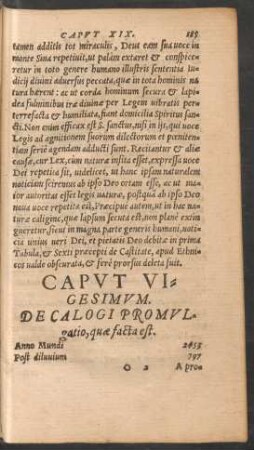 CAPVT XIX. 189
tamen additis tot miraculis, Deus eam sua uoce in
monte Sina repetiuit, ut palàm extaret & conspice-
retur in toto genere humano illustris sententia Iu-
dicij diuini aduersus peccata, quæ in tota hominis na
tura hærent: ac ut corda hominum secura & lapi-
dea fulminibus iræ diuinæ per Legem uibratis per-
terrefacta & humiliata, fiant domicilia Spiritus san-
cti. Non enim efficax est S. sanctus, nisi in ijs, qui uoce
Legis ad agnitionem suorum delictorum et pœniten-
tiam seriè agendam adducti sunt. Recitantur & aliæ
causæ, cur Lex, cùm naturæ insita esset, expressa uoce
Dei repetita sit, uidelicet, ut hanc ipsam naturalem
noticiam sciremus ab ipso Deo ortam esse, ac ut ma-
ior autoritas esset legis naturæ, postquã ab ipso Deo
noua uoce repetita est, Præcipuè autem, ut in hac na
turæ caligine, quæ lapsum secuta est, non planè extin
gueretur, sicut in magna parte generis humani, noti-
cia unius ueri Dei, et pietatis Deo debitæ in prima
Tabula, & Sexti præcepti de Castitate, apud Ethni-
cos ualde obscurata, & ferè prorsus deleta fuit.
CAPVT VI-
GESIMVM.
DECALOGI PROMVL-
gatio, quæ facta est.
Anno Mundi 2453
Post diluuium 797
O 2 A pro-